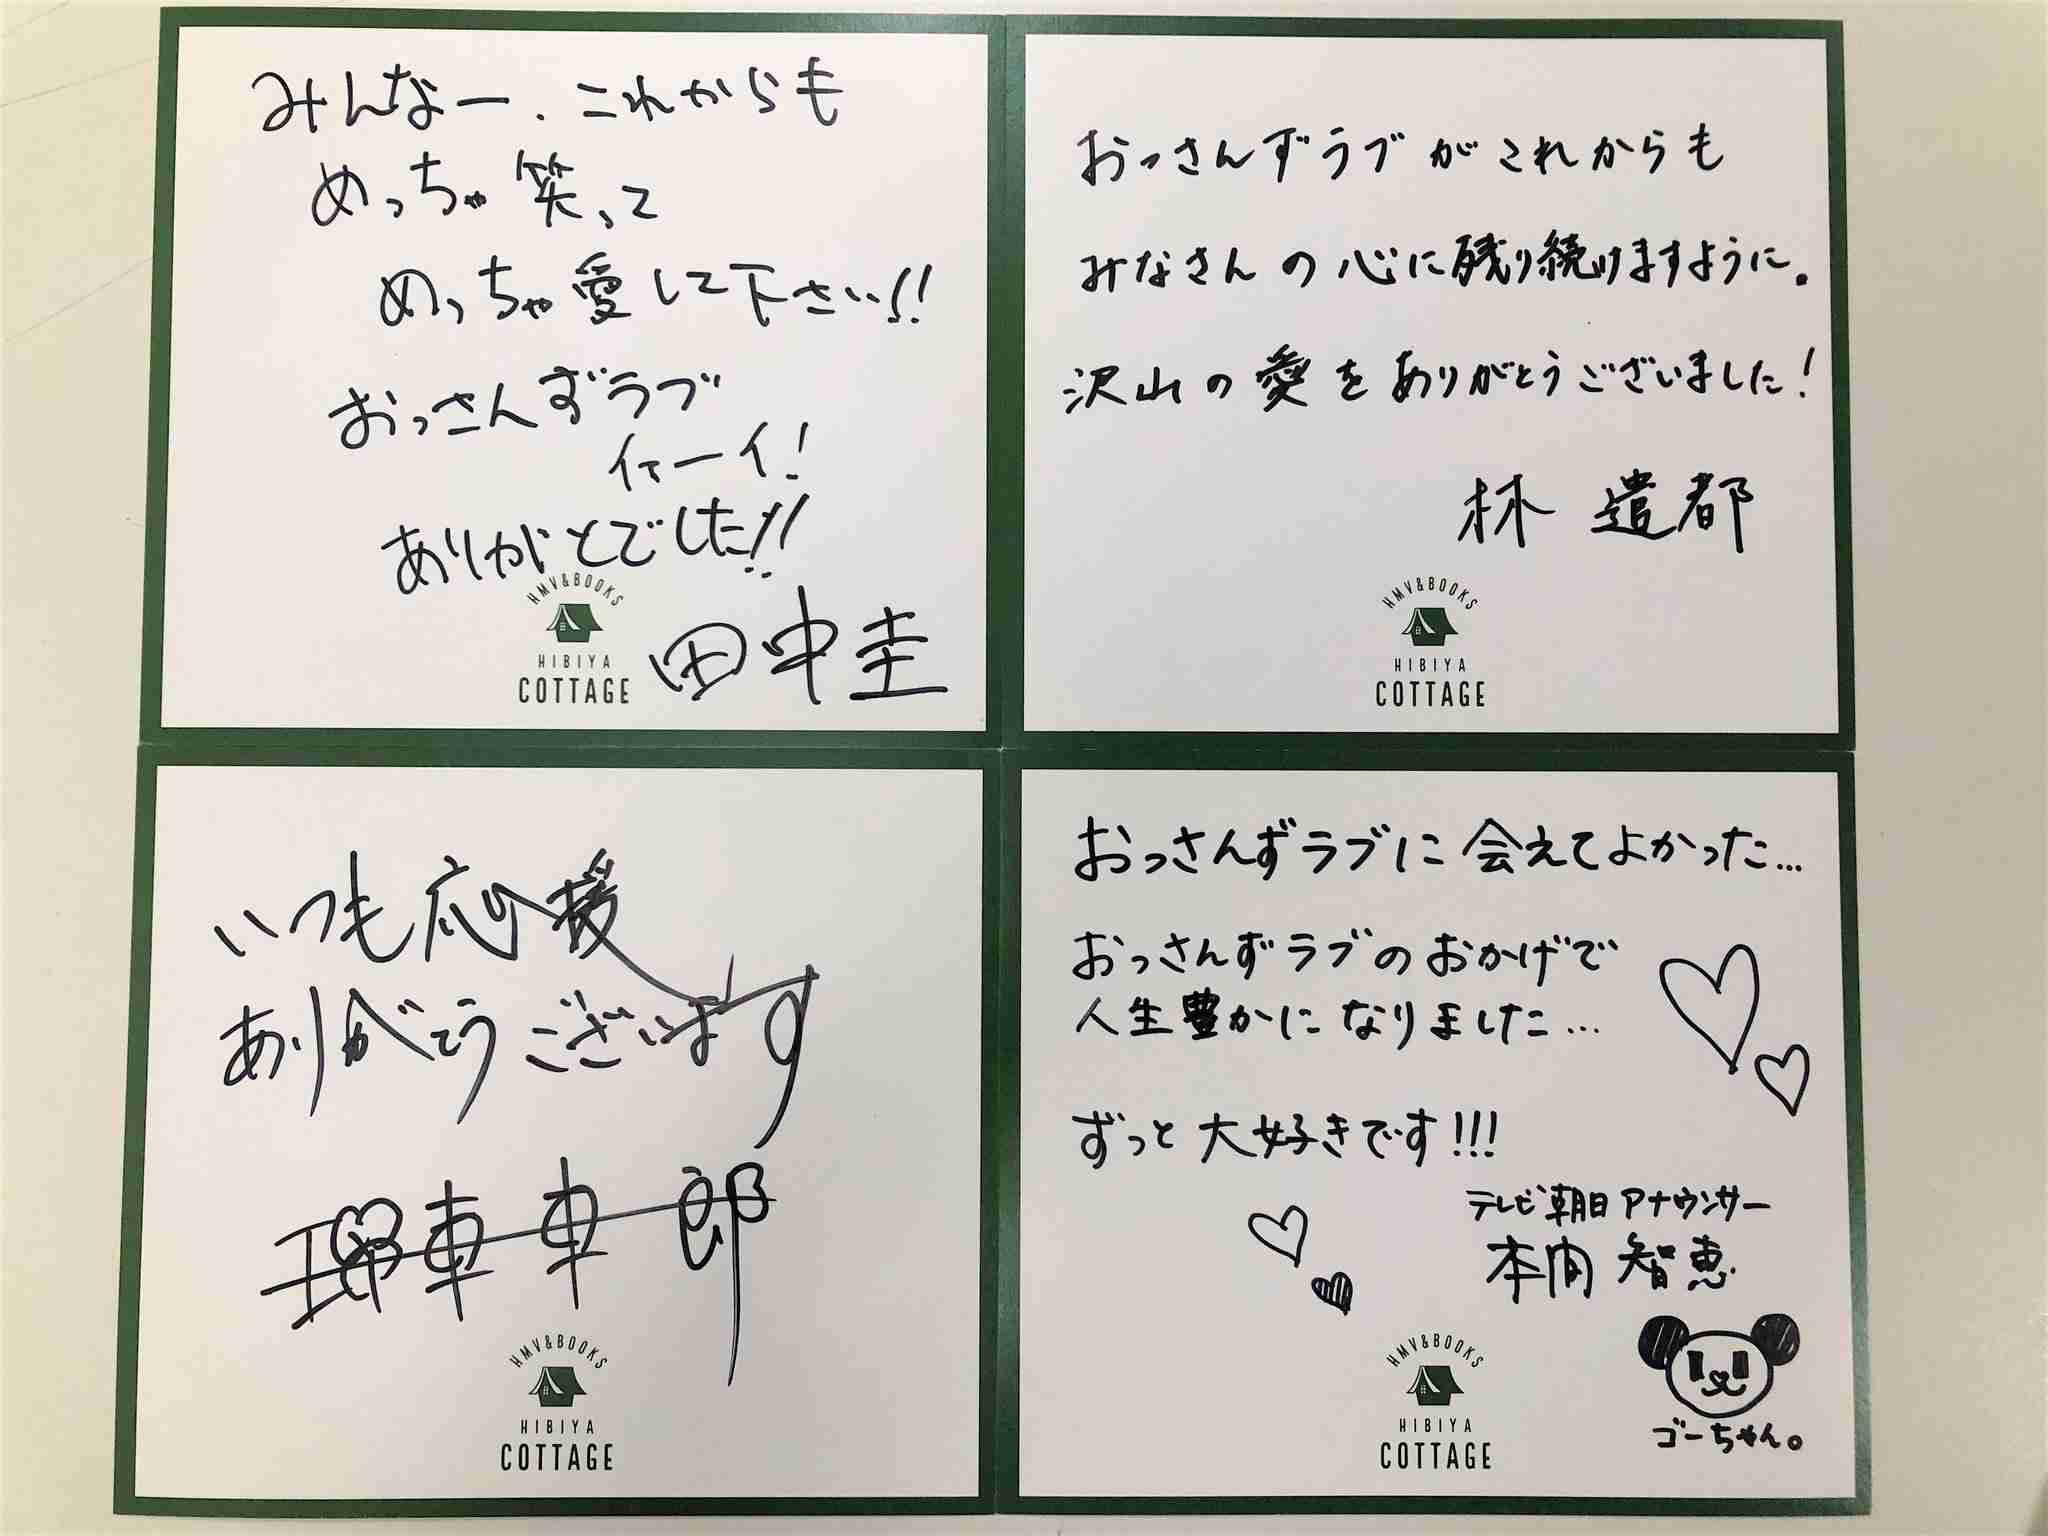 みんなー、これからも
めっちゃ笑って
めっちゃ愛して下さい!!
おっさんずラブ
イェーイ!
ありがとでした!!
HMV&BOOKS
HIBIYA
COTTAGE
田中圭
おっさんずラブがこれからも
みなさんの心に残り続けますように。
沢山の愛をありがとうございました!
林 遣都
HMV&BOOKS
HIBIYA
COTTAGE
いつも応援
ありがとうございます
瑠東東一郎
HMV&BOOKS
HIBIYA
COTTAGE
おっさんずラブに会えてよかった…
おっさんずラブのおかげで
人生豊かになりました…
ずっと大好きです!!!
テレビ朝日アナウンサー
本間 智恵
ゴーちゃん。
HMV&BOOKS
HIBIYA
COTTAGE